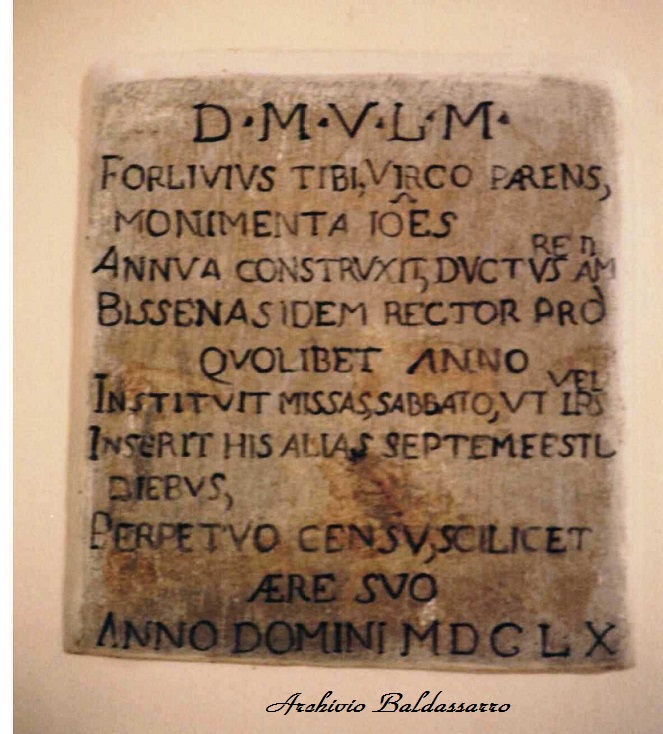 D·M·V·L·M·
FORLIVIVS TIBI, VIRCO PARENS,
MONIMENTA IOES
ANNVA CONSTRVXIT, DVCTVS AM
BISSENAS IDEM RECTOR PRO
QVOLIBET ANNO
INSTITVIT MISSAS, SABBATO, VT VEL
INSERIT HIS ALIAS SEPTEM
DIEBVS,
PERPETVO CENSV, SCILICET
ÆRE SVO
ANNO DOMINI MDCLX
Archivio Baldassarro